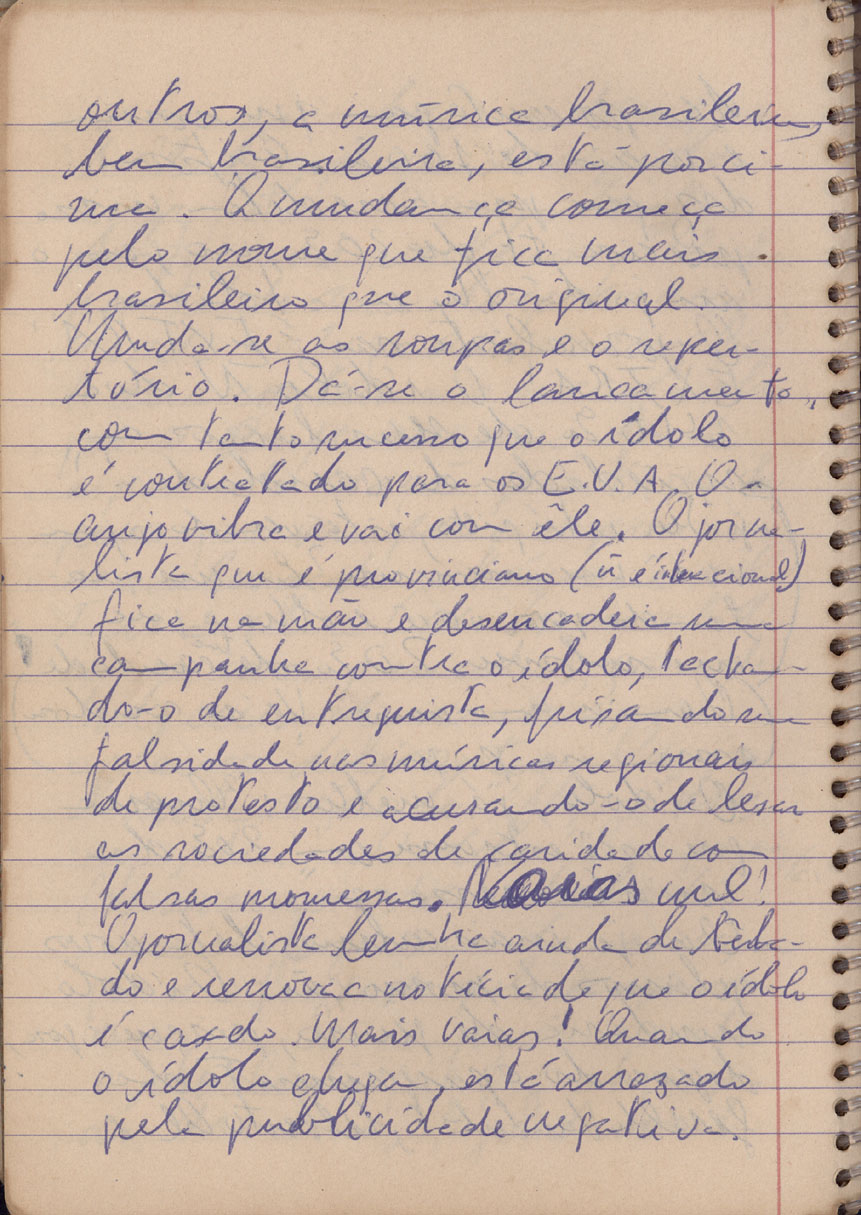 outros, a música brasileira,
bem brasileira, está por ci-
ma. A mudança começa
pelo nome que fica mais
brasileiro que o original.
Muda-se as roupas e o reper-
tório. Dá-se o lançamento,
com tanto sucesso que o ídolo
é contratado para os E.U.A. O
anjo vibra e vai com êle. O jorna-
lista que é provinciano (ñ é internacional)
fica na mão e desencadeia uma
campanha contra o ídolo, tachan-
do-o de entreguista, frisando sua
falsidade nas músicas regionais
de protesto e acusando-o de lesar
as sociedades de caridade com
falsas promessas. Vaias mil!
O jornalista lembra ainda do
do e renova a notícia de que o ídolo
é casado. Mais vaias! Quando
o ídolo chega, está arrazado
pela publicidade negativa.